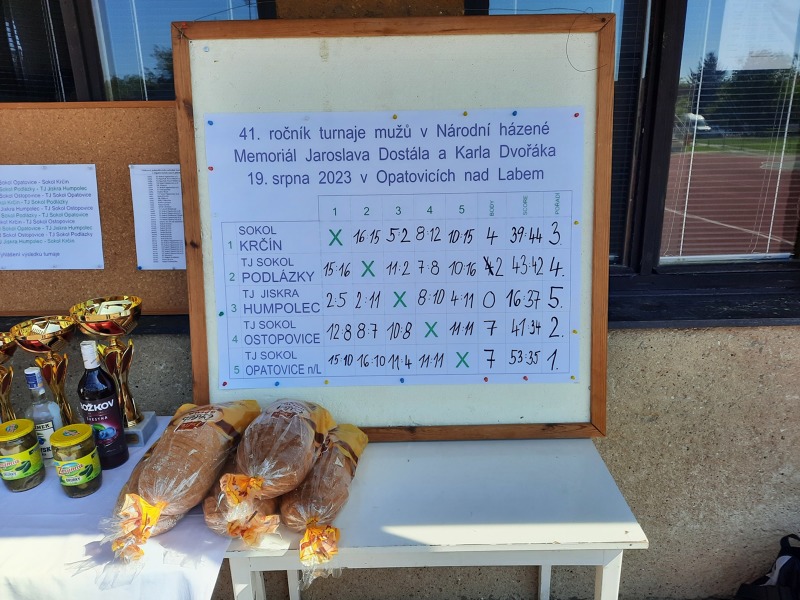 41. ročník turnaje mužů v Národní házené
Memoriál Jaroslava Dostála a Karla Dvořáka
19. srpna 2023 v Opatovicích nad Labem
1 2 3 4 5 BODY SCORE POŘADÍ
1 SOKOL KRČÍN X 16:15 5:2 8:12 10:15 4 39:44 3.
2 TJ SOKOL PODLÁZKY 15:16 X 11:2 7:8 10:16 2 43:42 4.
3 TJ JISKRA HUMPOLEC 2:5 2:11 X 8:10 4:11 0 16:37 5.
4 TJ SOKOL OSTOPOVICE 12:8 8:7 10:8 X 11:11 7 41:34 2.
5 TJ SOKOL OPATOVICE n/L 15:10 16:10 11:4 11:11 X 7 53:35 1.
Sokol Opatovice - Sokol Krčín
Sokol Podlázky - TJ Jiskra Humpolec
Sokol Ostopovice - TJ Sokol Opatovice
Krčín - TJ Sokol Podlázky
Humpolec - TJ Sokol Ostopovice
Podlázky - TJ Sokol Opatovice
Krčín - TJ Sokol Ostopovice
Opatovice - TJ Jiskra Humpolec
Ostopovice - TJ Sokol Podlázky
Jiskra Humpolec - Sokol Krčín
vyhlášení výsledků turnaje
BOŽKOV